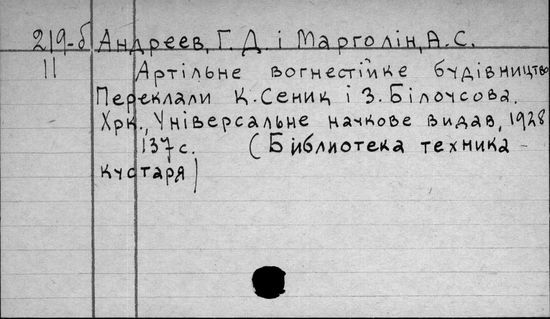 219-б Андреев, Г. Д. і Марголін, А. С.
11 Артільне вогнестійке будівництво
Переклали К. Сеник і З. Білоусова.
Хрк., Універсальне наукове видав, 1928
137 с. (Библиотека техника -
кустаря)